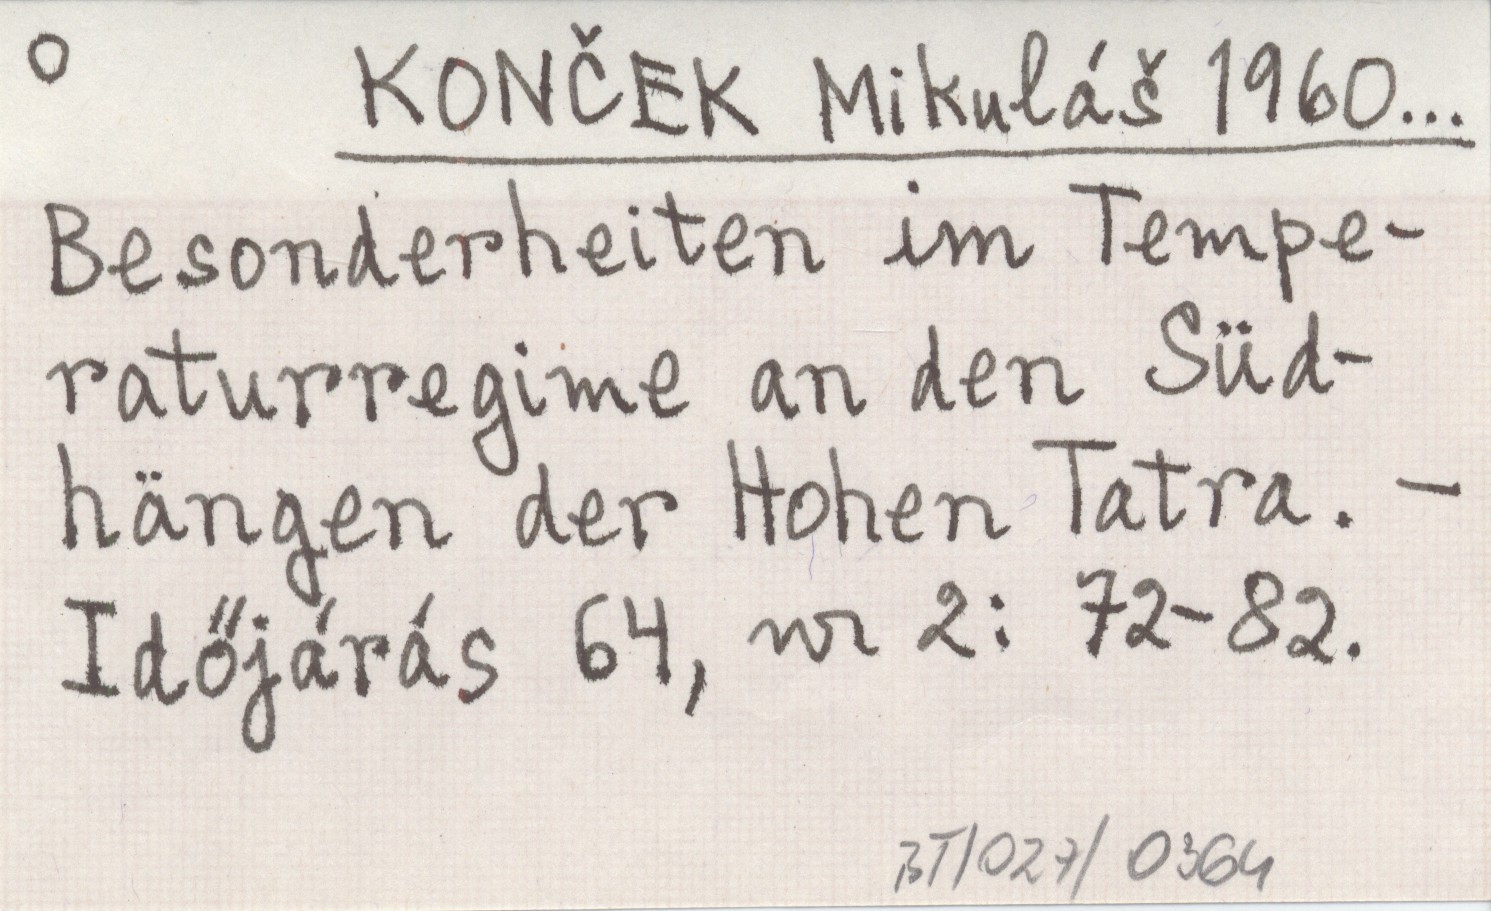 o KONČEK Mikuláš 1960...
Besonderheiten im Tempe-
raturregime an den Süd-
hängen der Hohen Tatra. –
Időjárás 64, nr 2: 72-82.
BT/027/ 0364